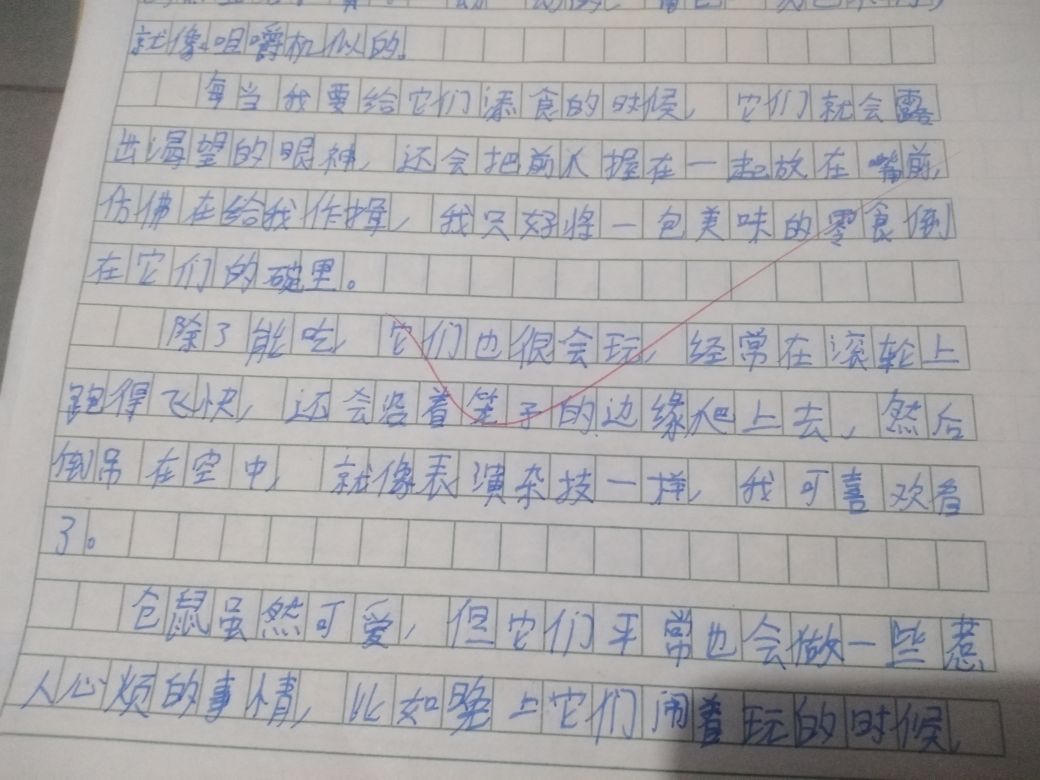 就像咀嚼机似的。
每当我要给它们添食的时候，它们就会露
出渴望的眼神，还会把前爪握在一起放在嘴前，
仿佛在给我作揖，我只好将一包美味的零食倒
在它们的碗里。
除了能吃，它们也很会玩，经常在滚轮上
跑得飞快，还会沿着笼子的边缘爬上去，然后
倒吊在空中，就像表演杂技一样，我可喜欢看
了。
仓鼠虽然可爱，但它们平常也会做一些惹
人心烦的事情，比如晚上它们闹着玩的时候，